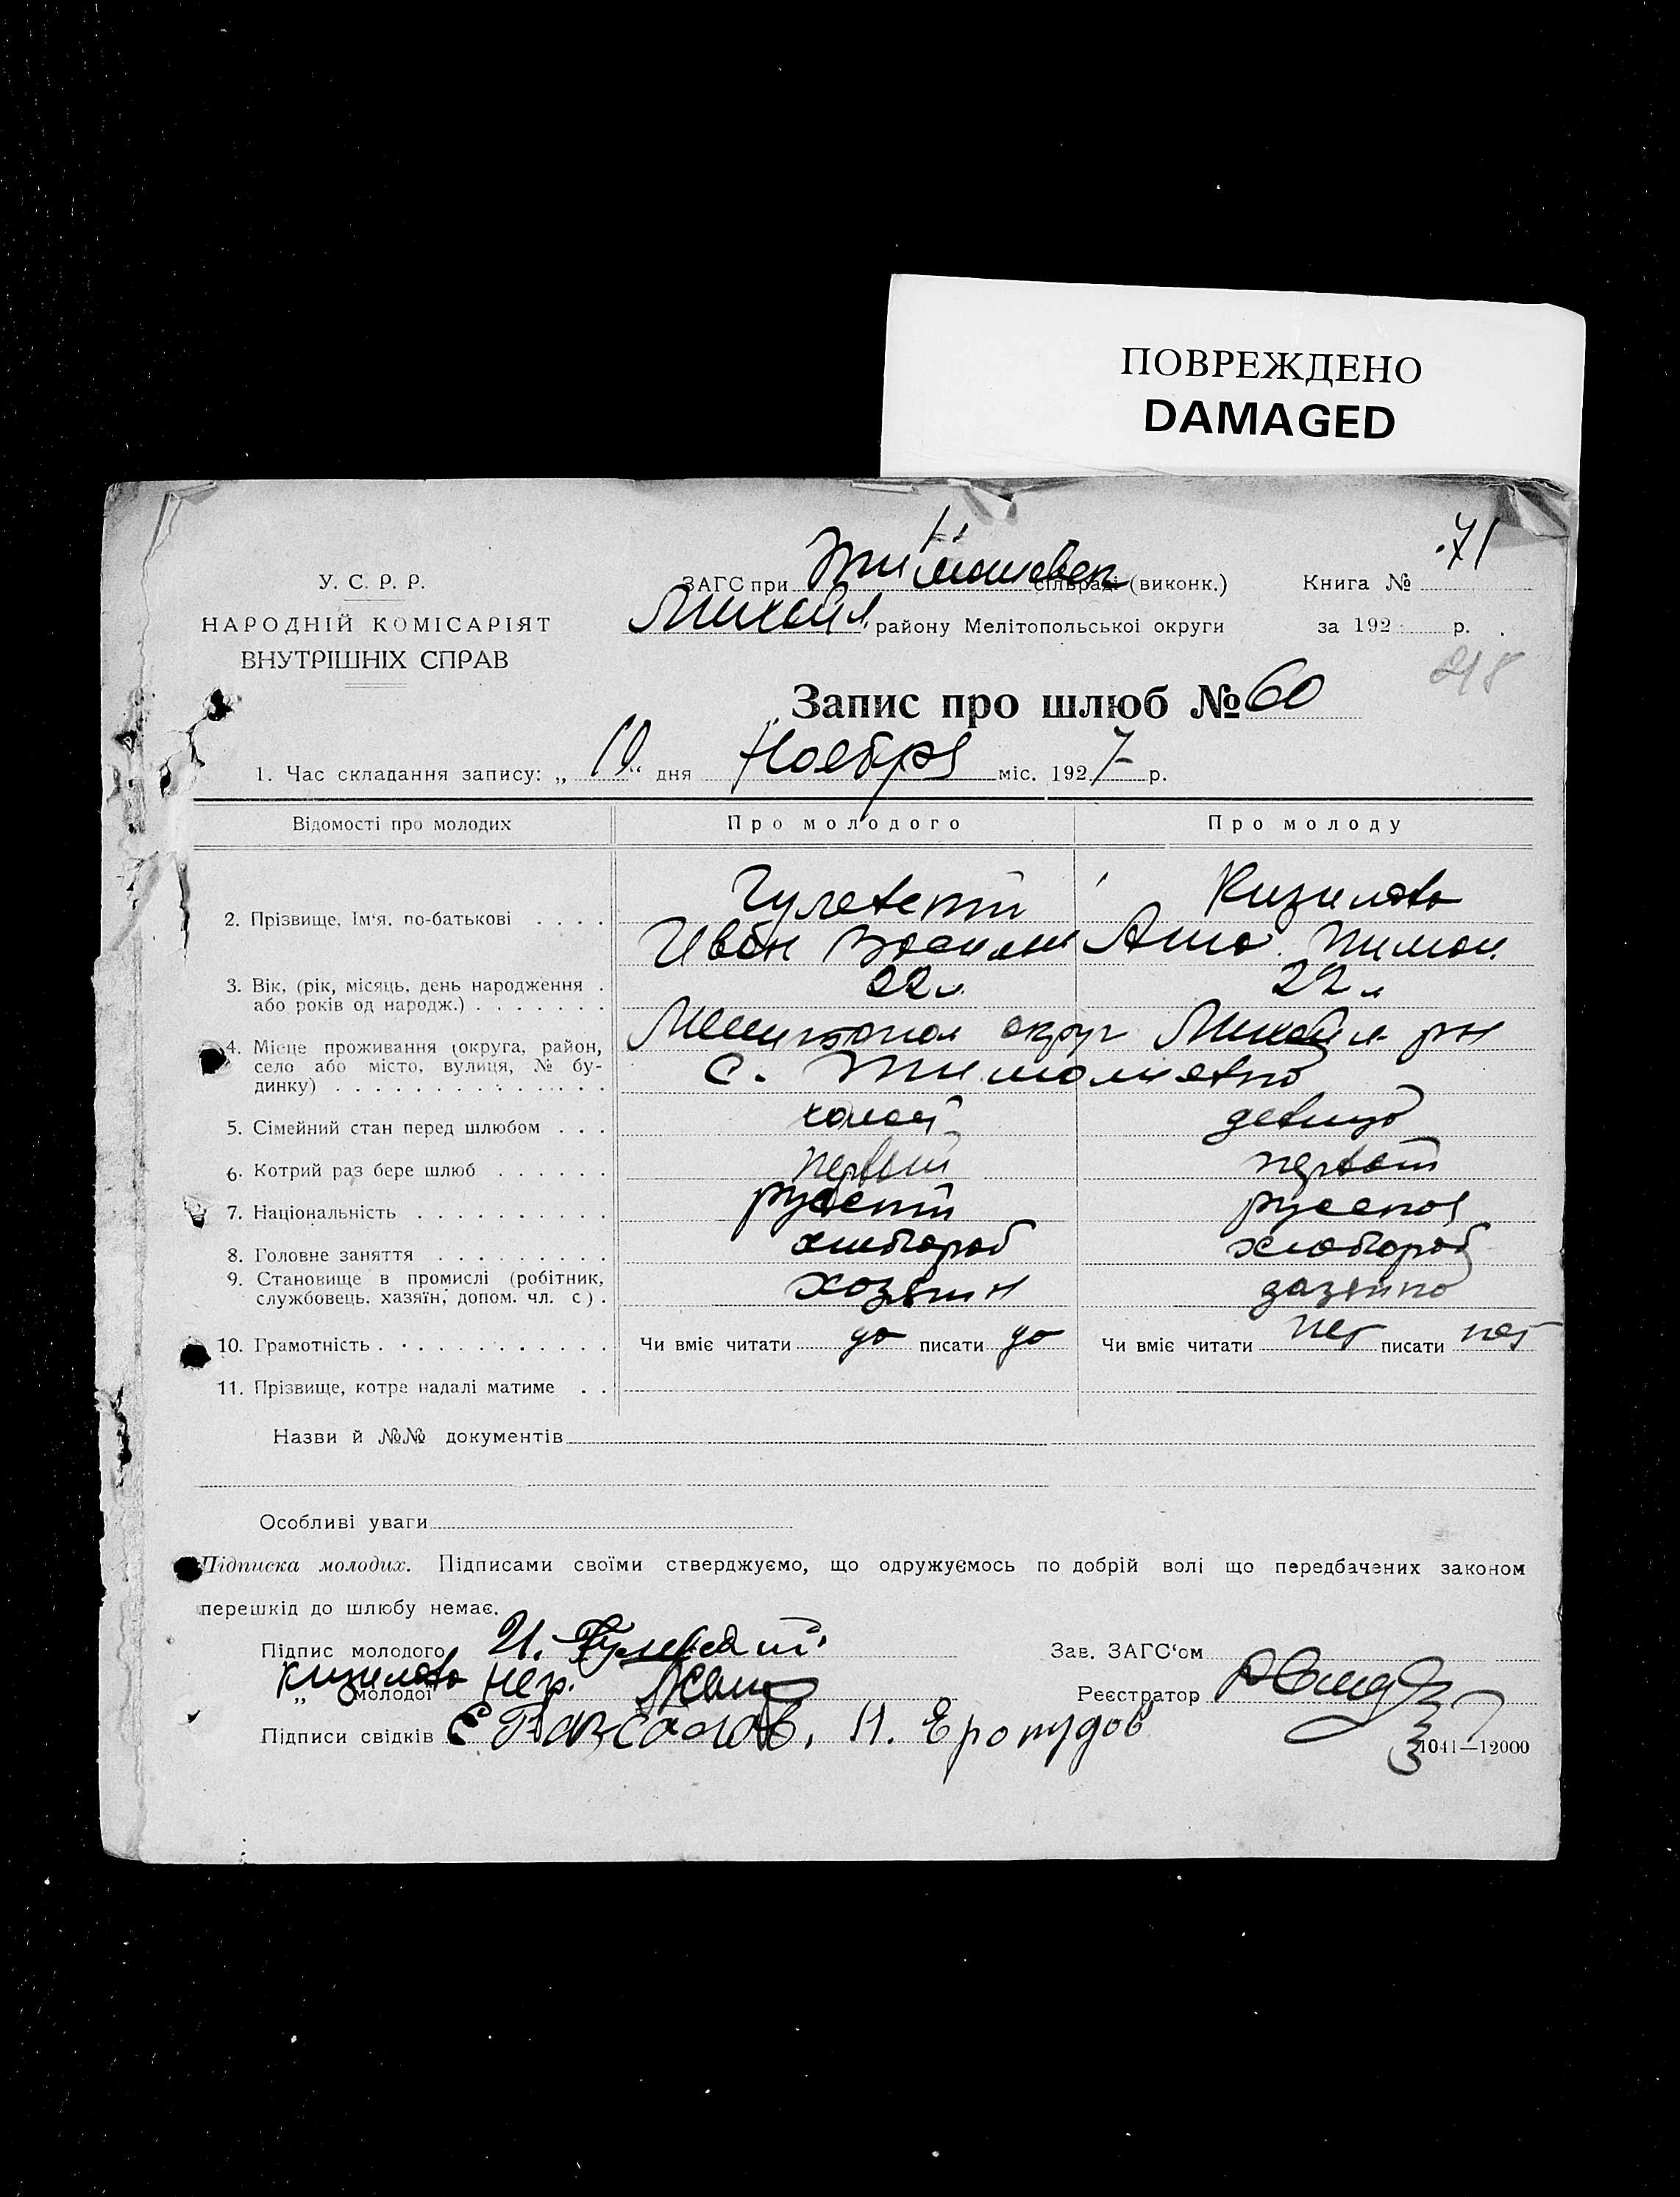 ПОВРЕЖДЕНО
DAMAGED
71
У. С. Р. Р.
ЗАГС при Тимошовск сільраді (виконк.) Книга №
НАРОДНІЙ КОМІСАРІЯТ
Михайл. району Мелітопольської округи за 192 р.
ВНУТРІШНІХ СПРАВ
218
Запис про шлюб № 60
1. Час складання запису: „ 10 “ дня Ноября міс. 1927 р.
Відомості про молодих Про молодого Про молоду
2. Прізвище, Ім‘я, по-батькові Гулевский Кизилова
Иван Васили Анна Пимон.
3. Вік, (рік, місяць, день народження або років од народж.) 22 л. 22 л
4. Місце проживання (округа, район, село або місто, вулиця, № будинку) Мелитопол округ Михайл рн
с. Тимошевка
5. Сімейний стан перед шлюбом холост девица
6. Котрий раз бере шлюб первый первый
7. Національність русский русская
8. Головне заняття хлебороб хлебороб
9. Становище в промислі (робітник, службовець, хазяїн, допом. чл. с.) хозяин
10. Грамотність Чи вміє читати да писати да Чи вміє читати нет писати нет
11. Прізвище, котре надалі матиме
Назви й №№ документів
Особливі уваги
Підписка молодих. Підписами своїми стверджуємо, що одружуємось по добрій волі що передбачених законом
перешкід до шлюбу немає.
Підпис молодого И. Гулевский Зав. ЗАГС‘ом
„ молодої Кизилова нер. Реєстратор
Підписи свідків
1041—12000